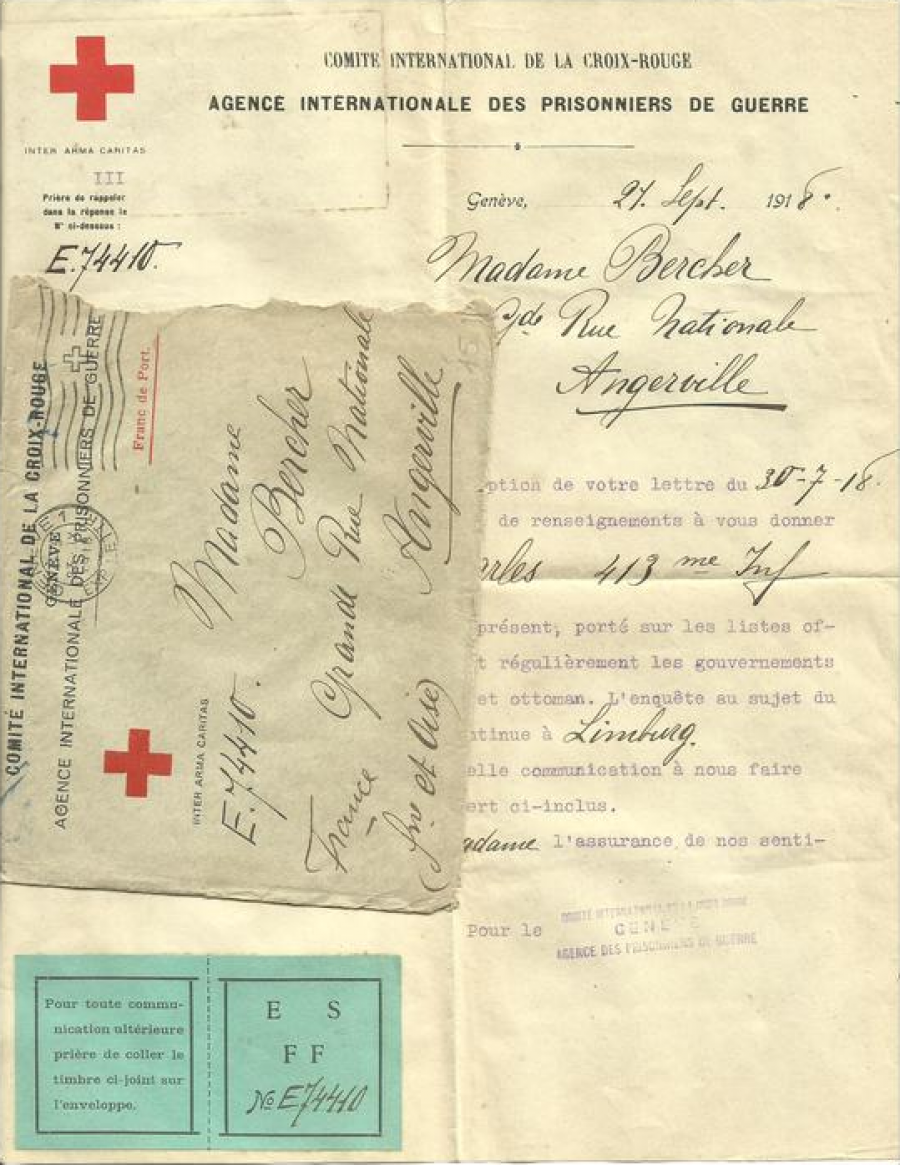 COMITÉ INTERNATIONAL DE LA CROIX-ROUGE
AGENCE INTERNATIONALE DES PRISONNIERS DE GUERRE
INTER ARMA CARITAS
III
Prière de rappeler
dans la réponse le
N° ci-dessous :
E.74410.
Genève, 27 Sept. 1918.
Madame Bercher
Gde Rue Nationale
Angerville
ption de votre lettre du 30-7-18.
de renseignements à vous donner
rles 413 me Inf
présent, porté sur les listes of-
t régulièrement les gouvernements
et ottoman. L'enquête au sujet du
tinue à Limburg.
elle communication à nous faire
ert ci-inclus.
adame l'assurance de nos senti-
Pour le
COMITÉ INTERNATIONAL DE LA CROIX-ROUGE
GENÈVE
AGENCE DES PRISONNIERS DE GUERRE
COMITÉ INTERNATIONAL DE LA CROIX-ROUGE
GENÈVE
AGENCE INTERNATIONALE DES PRISONNIERS DE GUERRE
Franc de Port.
INTER ARMA CARITAS
E.74410.
Madame
Bercher
Grande Rue Nationale
Angerville
France
et Oise)
Pour toute commu-
nication ultérieure
prière de coller le
timbre ci-joint sur
l'enveloppe.
E S
F F
No E74410